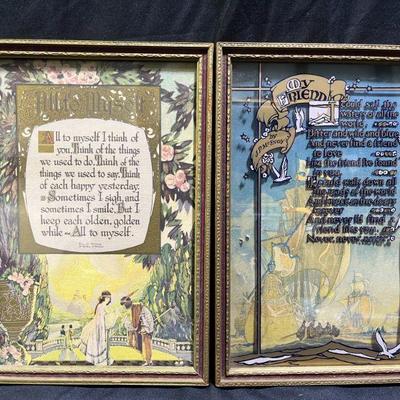 All to Myself
All to myself I think of
you, Think of the things
we used to do. Think of the
things we used to say, Think
of each happy yesterday;
Sometimes I sigh, and
sometimes I smile, But I
keep each olden, golden
while — All to myself.
My
Friend
I could sail the
waters of all the
world,
Bitter and wild and blue
And never I'd find a friend
to love
Like the friend I've found
in you.
I could walk down all
the roads of the world
And
forever
And never I'd find a
friend like you,
Never, never,